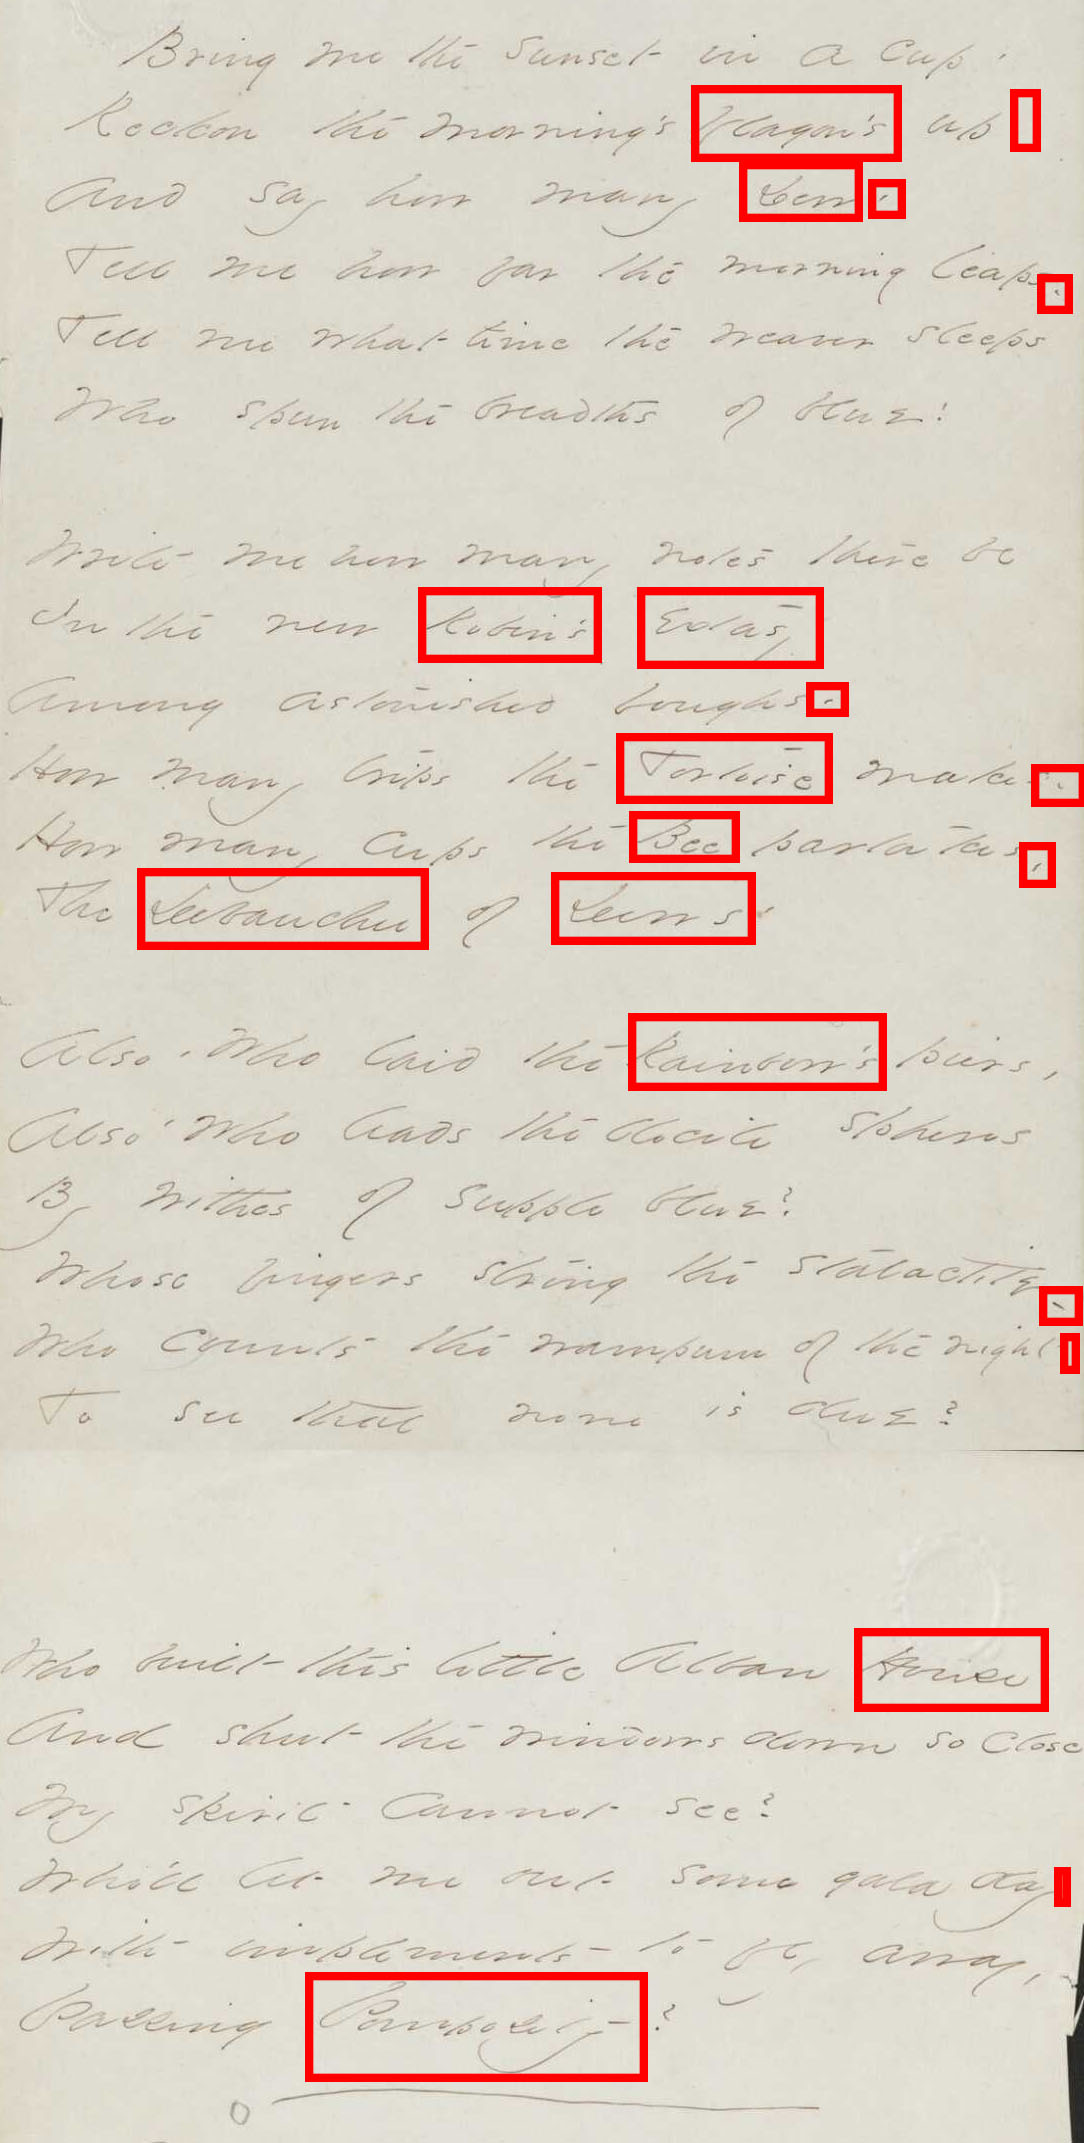 Bring me the Sunset in a Cup.
Reckon the morning's Flagon's up
And say how many Dew.
Tell me how far the morning leaps.
Tell me what time the weaver sleeps
Who spun the breadths of blue!
Write me how many notes there be
In the new Robin's Extasy
Among astonished boughs.
How many trips the Tortoise makes.
How many cups the Bee partakes,
The Debauchee of Dews.
Also. Who laid the Rainbow's piers,
Also. Who leads the docile spheres
By withes of supple blue?
Whose fingers string the stalactite.
Who counts the wampum of the night
To see that none is due?
Who built this little Alban House
And shut the windows down so close
My spirit cannot see?
Who'll let me out some gala day
With implements to fly away,
Passing Pomposity?